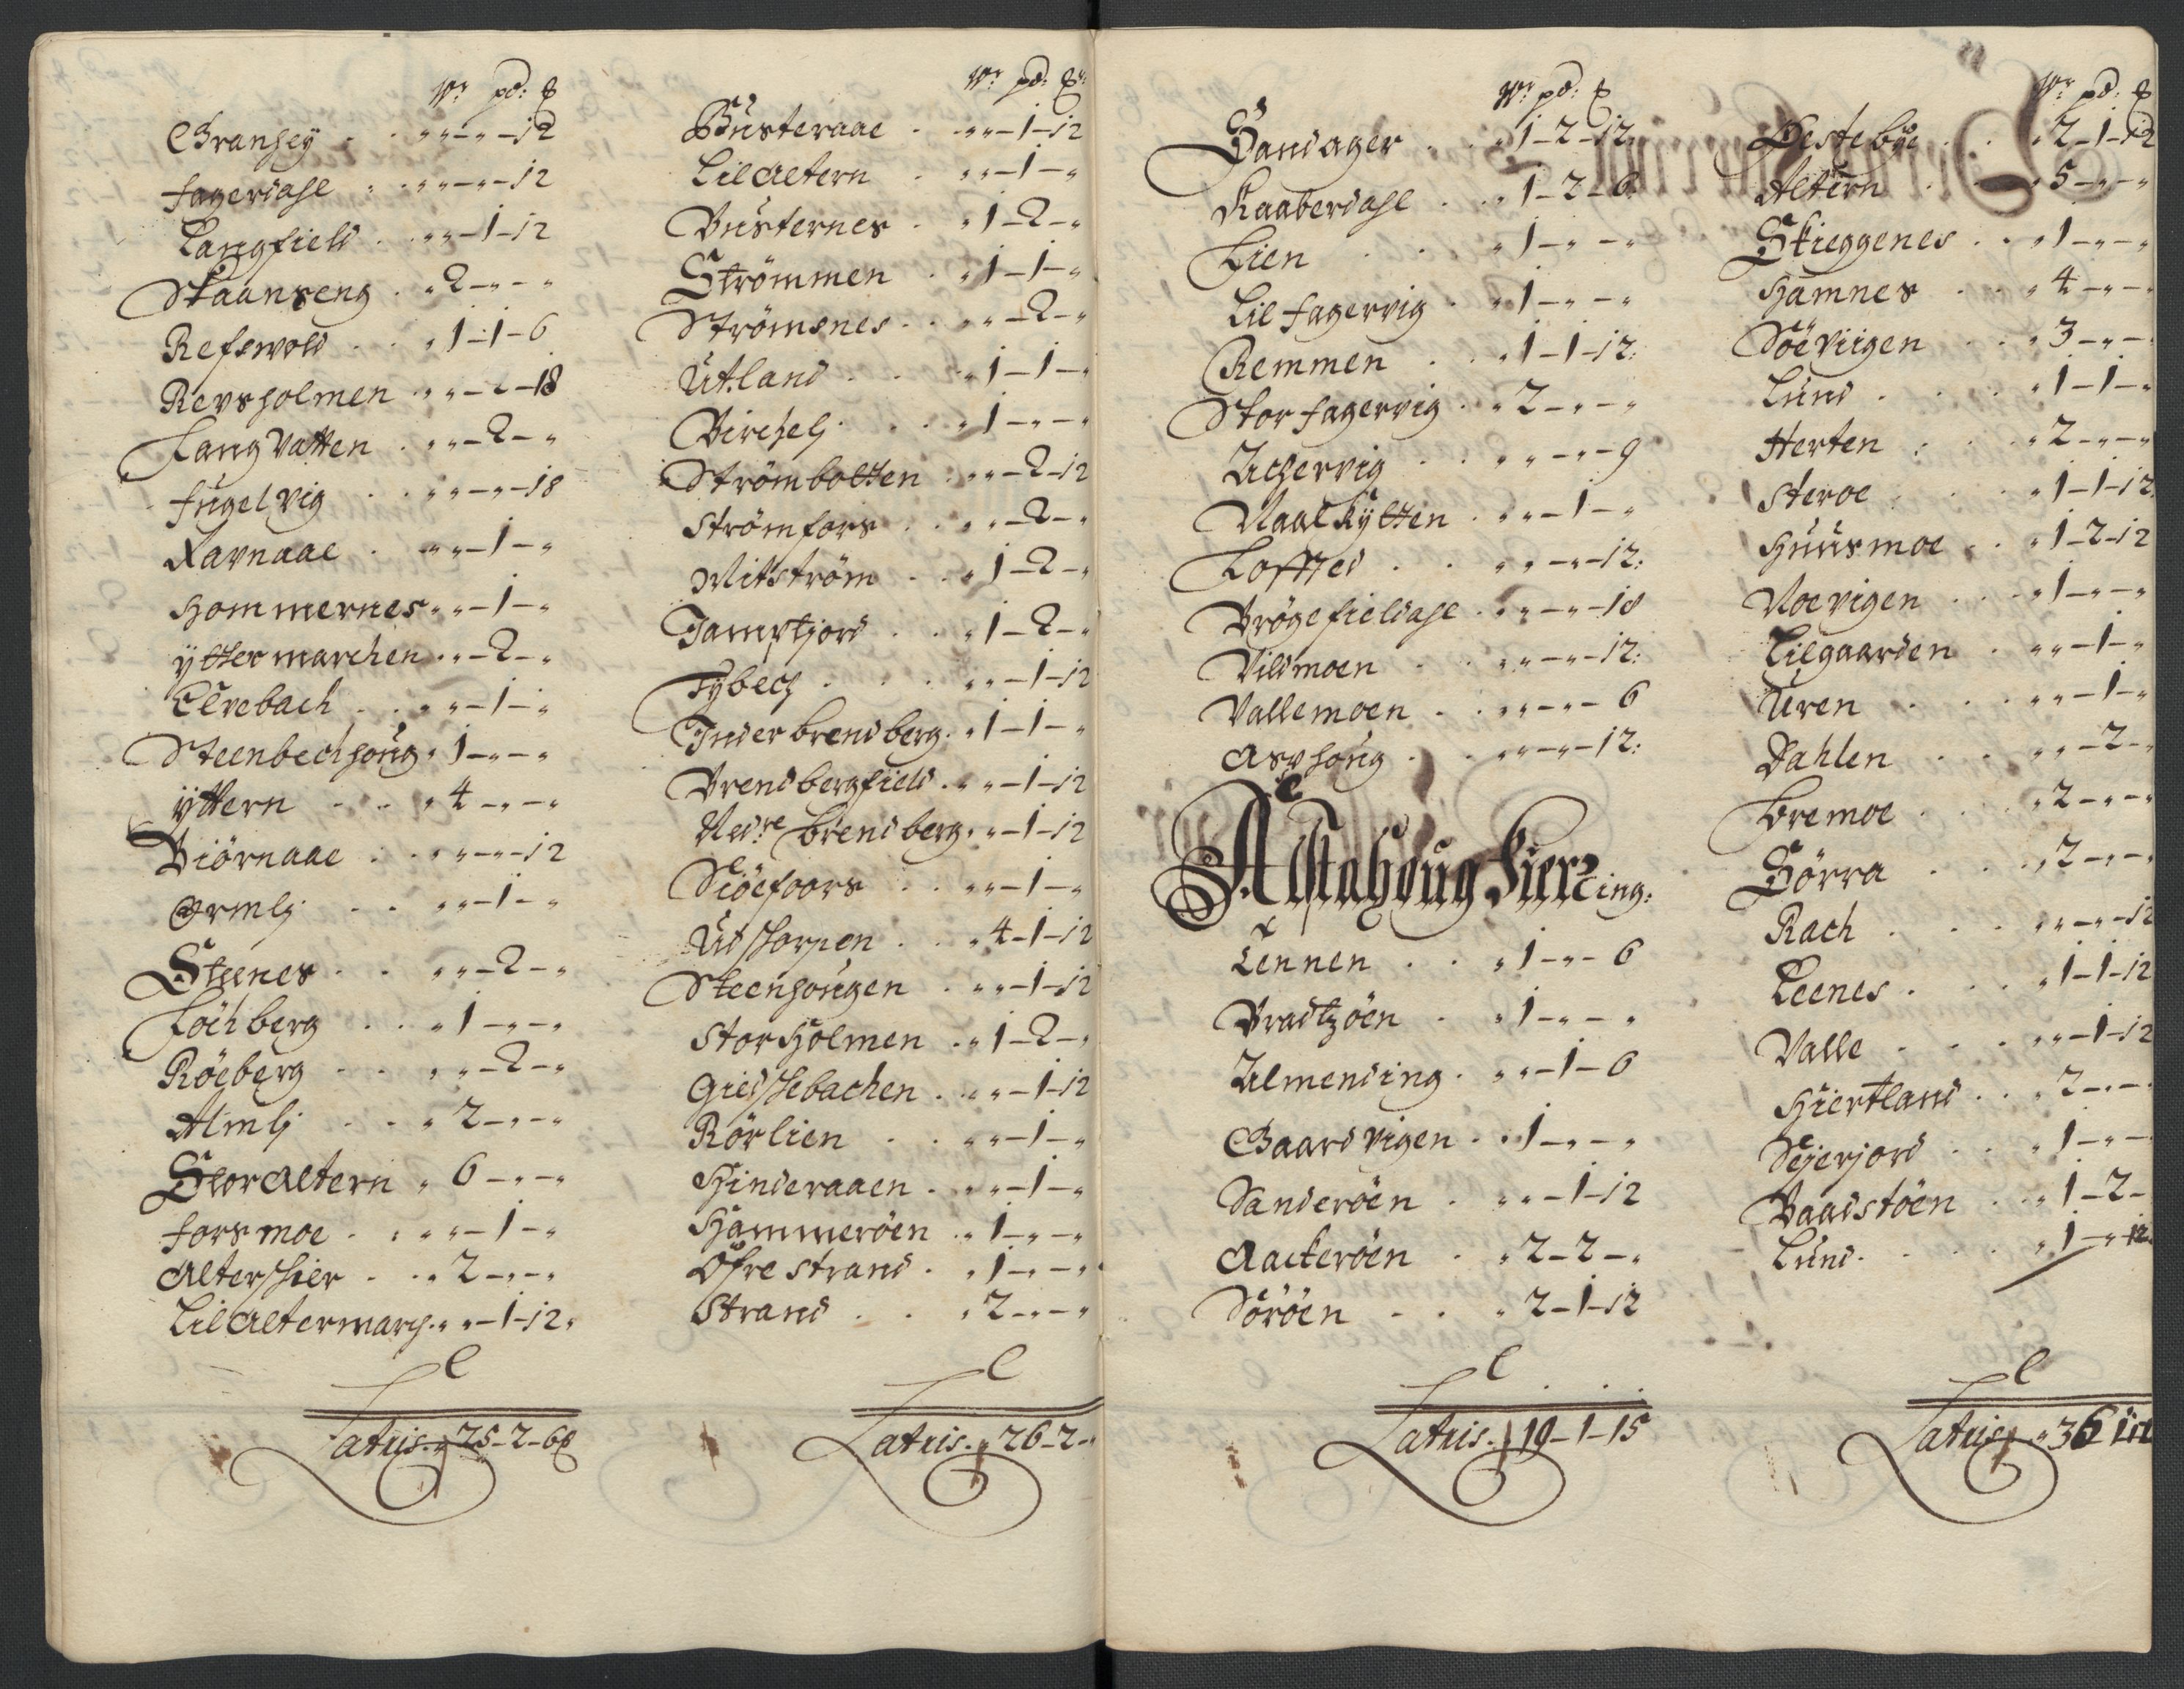 Wr pd: ℔
Granhey . . „ „ - „ - 12
Fagerdahl . „ „ - „ - 12
Langfield . „ „ - 1 - 12
Skaanseng . „ 2 - „ - „
Refswold . . „ 1 - 1 - 6
Revsholmen „ „ - 2 - 18
LangVatten . „ „ - 2 - „
Fugelvig . „ „ - „ - 18
Ravnaae . „ „ - 1 - „
Hommernes „ „ - 1 - „
Yttermarchen . „ - 2 - „
Elvebach . . „ „ - 1 - „
Steenbechhoug „ 1 - „ - „
Yttern . . „ 4 - „ - „
Biörnaae . „ „ - „ - 12
Ormlj . . „ „ - 1 - „
Steenes . . „ „ - 2 - „
Löchberg . . „ 1 - „ - „
Röeberg . . „ „ - 2 - „
Almlj . . „ 2 - „ - „
StorAltern „ 6 - „ - „
Forsmoe . . „ „ - 1 - „
Alterschier . „ 2 - „ - „
LilAltermarch „ „ - 1 - 12 „
Latus. „ 25 - 2 - 6 ℔
Wr pd: ℔:
Busteraae . „ „ - 1 - 12
LilAltern . „ „ - 1 - „
Busternes . „ 1 - 2 - „
Strömmen . „ 1 - 1 - „
Strömsnes . . „ „ - 2 - „
Utland . . „ 1 - 1 - „
Birchelj . . „ 1 - „ - „
Strömbotten . „ „ - 2 - 12
Strömfors . „ „ - 2 - „
Mitström . . „ 1 - 2 - „
Jamtfjord . . „ 1 - 2 - „
Tybech . . „ „ - 1 - 12
Inderbrendberg . „ 1 - 1 - „
Brendbergfield . „ „ - 1 - 12
Nedre brendberg . „ „ - 1 - 12
Siöefoors . . „ „ - 1 - „
Udskorpen . . „ 4 - 1 - 12
Steenhougen . „ „ - 1 - 12
StorHolmen . „ 1 - 2 - „
Giedskebachen . „ „ - 1 - 12
Rörlien . . „ „ - 1 - „
Hinderaaen . „ „ - 1 - „
Hammeröen . „ 1 - „ - „
Öfre strand . „ 1 - „ - „
Strand . . „ 2 - „ - „
Latus. „ 26 - 2 - „
Wr pd: ℔
Sandager . . „ 1 - 2 - 12:
Raaberdahl . „ 1 - 2 - 6
Lien . . „ 1 - „ - „
Lil Fagervig . „ 1 - „ - „
Remmen . . „ 1 - 1 - 12:
Stor Fagervig . „ 2 - „ - „
Uchervig . . „ „ - „ - 9
Naalkytten . „ „ - 1 - „
Loffted . . „ „ - „ - 12:
Brögefieldahl . „ „ - „ - 18
Vildmoen . . „ „ - „ - 12:
Vallemoen . „ „ - „ - 6
Asphoug . . „ „ - „ - 12:
Alstahoug Fierding:
Tennen . . „ 1 - „ - 6
Bradtzöen . „ 1 - „ - „
Almending . „ „ - 1 - 6
Gaardvigen . „ 1 - „ - „
Sanderöen . „ „ - 1 - 12
Aackeröen . „ 2 - 2 - „
Söröen . . „ 2 - 1 - 12
Latus. „ 19 - 1 - 15
Wr pd: ℔
Bestebye . . „ 2 - 1 - 12
Altern . . „ 5 - „ - „
Skieggenes . . „ 1 - „ - „
Hamnes . . „ 4 - „ - „
Söeviigen . . „ 3 - „ -
Lund . . „ 1 - 1 - „
Herten . . „ 2 - „ - „
Steroe . . „ 1 - 1 - 12
Huusmoe . . „ 1 - 2 - 12
Noevigen . . „ 1 - „ - „
Lilgaarden . „ „ - 1 - „
Uren . . „ „ - 1 - „
Dahlen . . „ „ - 2 - „
Bremoe . . „ 2 - „ - „
Sörra . . „ 2 - „ - „
Rach . . „ „ - „ - 12
Leenes . . „ 1 - 1 - 12
Valle . . „ „ - 1 - 12
Hiertland . . „ 2 - „ -
Sejerjord . . „ 1 - „ -
Baadstöen . . „ 1 - 2 -
Lund . . „ 1 - „ - 12
Latus „ 36